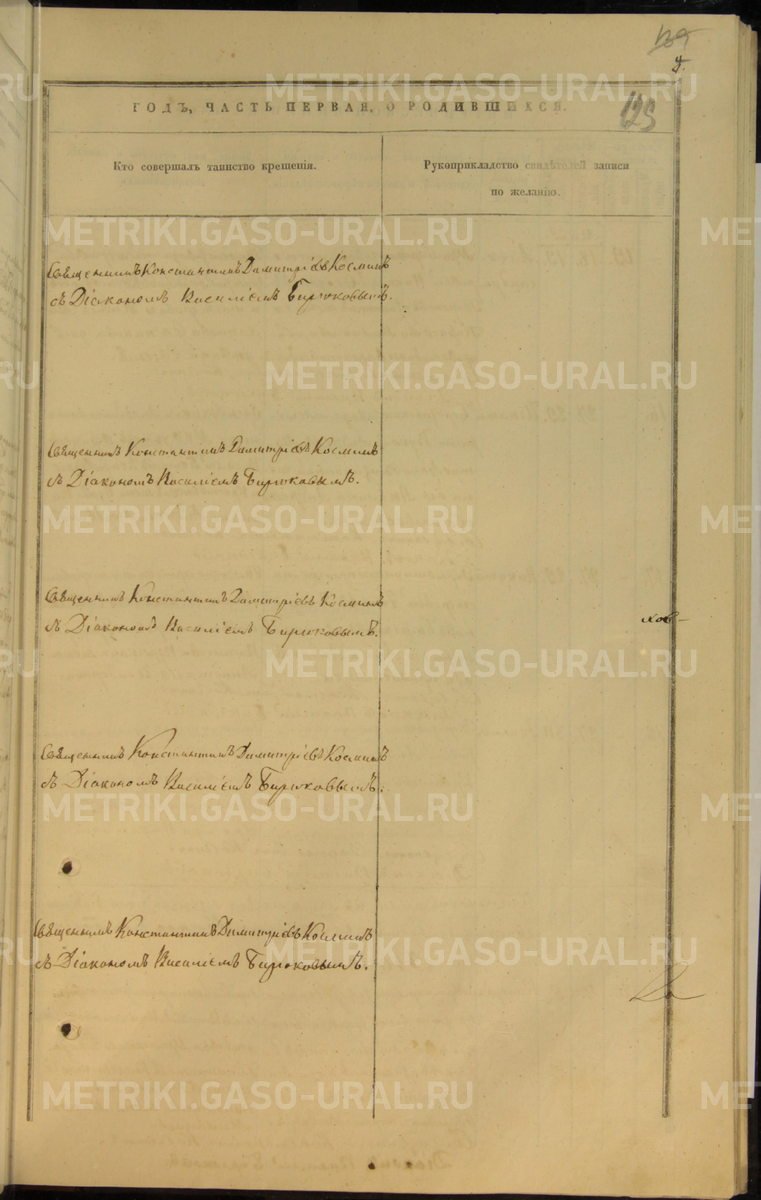 125
ГОДЪ, ЧАСТЬ ПЕРВАЯ, О РОДИВШИХСЯ.
Кто совершалъ таинство крещенія.
Рукоприкладство свидѣтелей записи
по желанію.
Священникъ Константинъ Димитріевъ Косминъ
съ Діакономъ Василіемъ Бирюковымъ.
Священникъ Константинъ Димитріевъ Косминъ
съ Діакономъ Василіемъ Бирюковымъ.
Священникъ Константинъ Димитріевъ Косминъ
съ Діакономъ Василіемъ Бирюковымъ.
Священникъ Константинъ Димитріевъ Косминъ
съ Діакономъ Василіемъ Бирюковымъ.
Священникъ Константинъ Димитріевъ Косминъ
съ Діакономъ Василіемъ Бирюковымъ.
METRIKI.GASO-URAL.RU